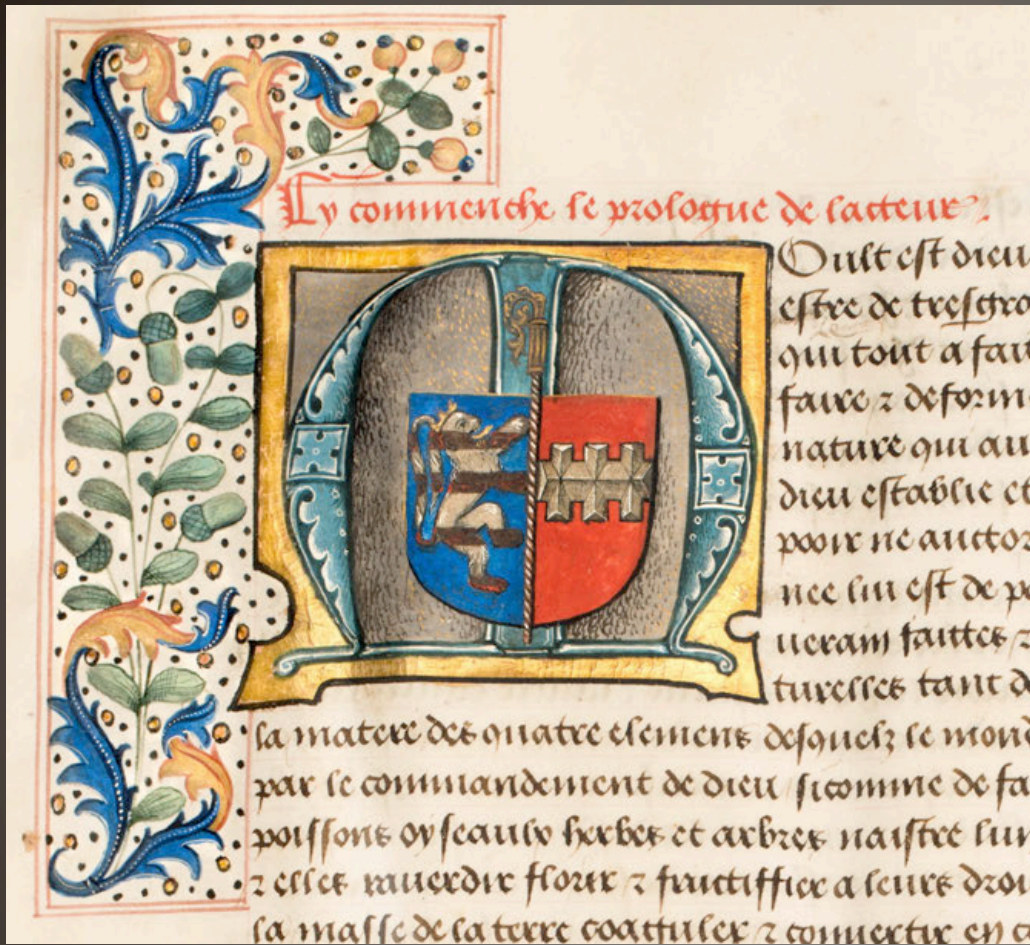 Cy commenche le prologue de lacteur.
Oult est dieu
estre de tresgra
qui tout a fait
faire ⁊ deform
nature qui au
dieu establie et
pooir ne auctor
nee lui est de p
ueram faittes ⁊
turelles tant d
la matere des quatre elemens desquelz le mond
par le commandement de dieu sicomme de fa
poissons oyseaulx herbes et arbres naistre
⁊ elles rauerdir florir ⁊ fructiffier a leurs droi
la masse de la terre coaguler ⁊ conuertir en